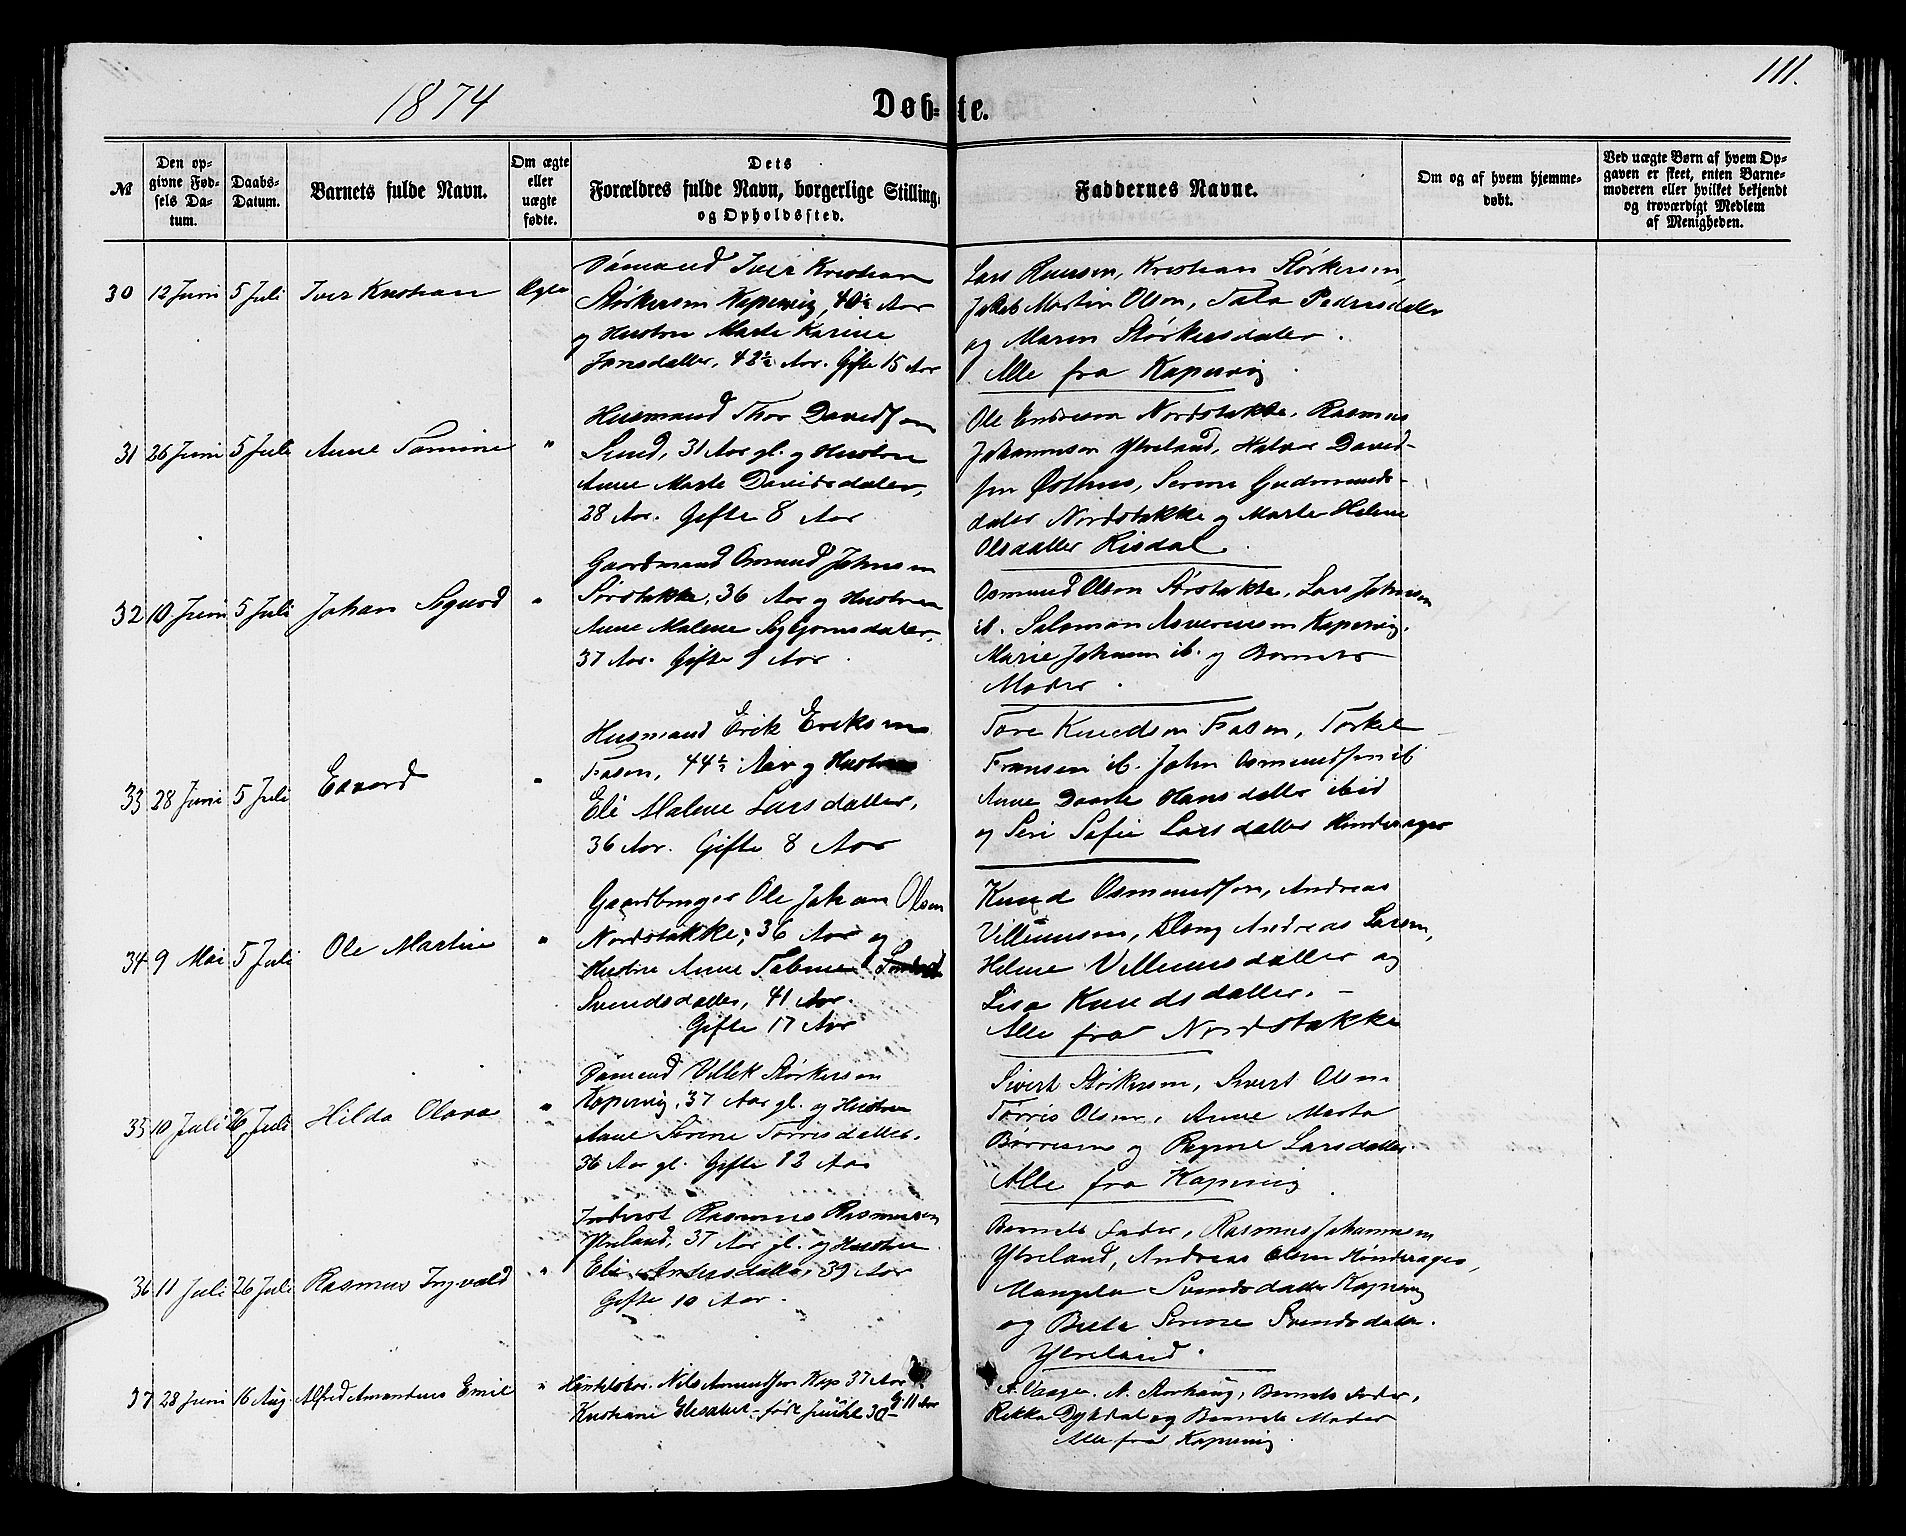 111.
1874
Døb- te.
№
Den op-
givne Fød-
sels Da-
tum.
Daabs-
Datum.
Barnets fulde Navn.
Om ægte
eller
uægte
fødte.
Dets
Forældres fulde Navn, borgerlige Stilling,
og Opholdssted.
Faddernes Navne.
Om og af hvem hjemme-
døbt.
Ved uægte Børn af hvem Op-
gaven er skeet, enten Barne-
moderen eller hvilket bekjendt
og troværdigt Medlem
af Menigheden.
30 12 Juni 5 Juli Iver Kristian Ægte
Iver Kristian
Størkersen Kopervig, 40½ Aar
og Hustru Marte Karine
Jonsdatter, 42½ Aar. Gifte 15 Aar
Lars Knusen, Kristian Størkersen,
Jakob Martin Olson, Tala Pedersdatter
og Maren Størkersdatter.
Alle fra Kopervig
31 26 Juni 5 Juli Anne Tomine "
Husmand Thor Davidsen
Sund, 31 Aar gl. og Hustru
Anne Marte Davidsdater,
28 Aar. Gifte 8 Aar
Ole Endresen Nordstokke, Rasmus
Johannesen Ytreland, Halvor David-
sen Østhus, Serine Gudmunds-
dater Nordstokke og Marte Helene
Olsdatter Risdal.
32 10 Juni 5 Juli Johan Sigurd "
Gaardmand Osmund Johnsen
Sørstokke, 36 Aar og Hustru
Anne Malene Sygbjørnsdater,
37 Aar. Gifte 9 Aar.
Osmund Olson Sørstokke, Lars Johnsen
ib. Salomon Asverusen Kopervig.
Marie Johnsen ib. og Barnets
Moder.
33 28 Juni 5 Juli Edvard "
Husmand Erik Eriksen
Fosen, 44½ Aar og Hustru
Eli Malene Larsdatter,
36 Aar. Gifte 8 Aar
Tore Knudsen Fosen, Torkel
Fransen ib. John Osmundsen ib
Anne Hansdatter ibid
og Seri Sofie Larsdatter Hinderager
34 9 Mai 5 Juli Ole Martin "
Gaardbruger Ole Johan Olsen
Nordstokke, 36 Aar og
Hustru Anne Tabine
Svendsdatter, 41 Aar.
Gifte 17 Aar
Knud Osmundsen, Andreas
Villumsen, Andreas Larsen,
Helene Villumsdatter og
Lisa Knudsdatter. –
Alle fra Nordstokke
35 10 Juli 26 Juli Hilda Olava "
Villik Størkersen
Kopervig, 37 Aar gl. og Hustru
Anne Serene Torrisdatter.
36 Aar gl. Gifte 12 Aar
Sivert Størkersen, Sivert Olsen
Torris Olsen, Anne Marta
Børresen og Regine Larsdatter.
Alle fra Kopervig
36 11 Juli 26 Juli Rasmus Ingvald "
Inderst Rasmus Rasmussen
Ytreland, 37 Aar gl. og Hustru
Eli Andersdatter, 39 Aar
Gifte 10 Aar.
Barnets Fader, Rasmus Johannesen
Ytreland, Andreas Olsen Hinderager,
Mangela Svendsdatter Kopervig
og Berte Serine Svendsdatter.
Ytreland.
37 28 Juni 16 Aug. Alfred Amandus Emil "
Nils Amundsen Kop. 37 Aar
Kristiane Elisabet født 30 – G. 11 Aar
A. Vaage. N. Storhaug, Barnets Fader,
Rikka Dybdal og Barnets Moder
Alle fra Kopervig.